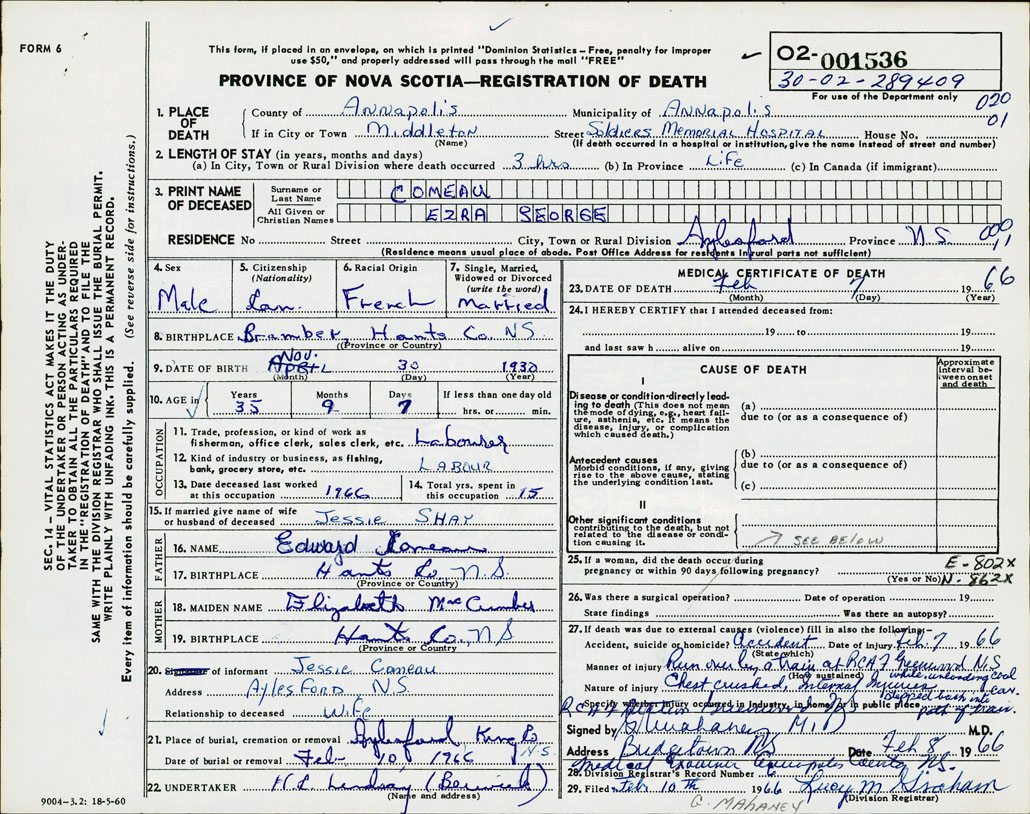 FORM 6
This form, if placed in an envelope, on which is printed "Dominion Statistics – Free, penalty for improper
use $50," and properly addressed will pass through the mail "FREE"
PROVINCE OF NOVA SCOTIA—REGISTRATION OF DEATH
02-001536
30-02-289409
For use of the Department only
020
01
1. PLACE OF DEATH
County of Annapolis Municipality of Annapolis
If in City or Town Middleton Street Soldiers Memorial Hospital House No.
(Name) (If death occurred in a hospital or institution, give the name instead of street and number)
2. LENGTH OF STAY (in years, months and days)
(a) In City, Town or Rural Division where death occurred 3 hrs (b) In Province Life (c) In Canada (if immigrant)
3. PRINT NAME OF DECEASED
Surname or Last Name COMEAU
All Given or Christian Names EZRA GEORGE
RESIDENCE No Street City, Town or Rural Division Aylesford Province N.S.
(Residence means usual place of abode. Post Office Address for residents in rural parts not sufficient)
000
11
4. Sex
Male
5. Citizenship
(Nationality)
Can.
6. Racial Origin
French
7. Single, Married,
Widowed or Divorced
(write the word)
Married
8. BIRTHPLACE Bramber, Hants Co. NS
(Province or Country)
Nov.
9. DATE OF BIRTH April 30 1930
(Month) (Day) (Year)
10. AGE in Years Months Days If less than one day old
35 9 7 hrs. or min.
OCCUPATION
11. Trade, profession, or kind of work as
fisherman, office clerk, sales clerk, etc. Labourer
12. Kind of industry or business, as fishing,
bank, grocery store, etc. LABOUR
13. Date deceased last worked
at this occupation 1966
14. Total yrs. spent in
this occupation 15
15. If married give name of wife
or husband of deceased Jessie SHAY
FATHER
16. NAME Edward Comeau
17. BIRTHPLACE Hants Co. N.S.
(Province or Country)
MOTHER
18. MAIDEN NAME Elizabeth MacCumber
19. BIRTHPLACE Hants Co., NS
(Province or Country
20. of informant Jessie Comeau
Address AylesFord, N.S.
Relationship to deceased Wife
21. Place of burial, cremation or removal Aylesford Kings
N.S.
Date of burial or removal Feb- 10, 1966
22. UNDERTAKER H.C. Lindsay (Berwick)
(Name and address)
MEDICAL CERTIFICATE OF DEATH
23. DATE OF DEATH Feb 7 1966
(Month) (Day) (Year)
24. I HEREBY CERTIFY that I attended deceased from:
19 to 19
and last saw h alive on 19
CAUSE OF DEATH
Approximate
interval be-
tween onset
and death
I
Disease or condition directly lead-
ing to death (This does not mean
the mode of dying, e.g., heart fail-
ure, asthenia, etc. It means the
disease, injury, or complication
which caused death.)
(a)
due to (or as a consequence of)
Antecedent causes
Morbid conditions, if any, giving
rise to the above cause, stating
the underlying condition last.
(b)
due to (or as a consequence of)
(c)
II
Other significant conditions
contributing to the death, but not
related to the disease or condi-
tion causing it.
SEE BELOW
25. If a woman, did the death occur during
pregnancy or within 90 days following pregnancy?
(Yes or No)
E-802X
N-862X
26. Was there a surgical operation? Date of operation 19
State findings Was there an autopsy?
27. If death was due to external causes (violence) fill in also the following:–
Accident, suicide or homicide? Accident Date of injury Feb. 7 1966
(State which)
Manner of injury Run over by a train at RCAF Greenwood N.S
(How sustained) while unloading coal
car.
Nature of injury Chest crushed, Internal Injuries
stepped back into
path of train.
Specify whether injury occurred in industry, in home or in public place
Signed by Mahaney M.D M.D.
Address Bridgetown NS Date Feb 8 1966
Medical Examiner Annapolis County NS.
28. Division Registrar's Record Number 6
29. Filed Feb 10th 1966 Lucy M Graham
(Division Registrar)
G. MAHANEY
SEC. 14 – VITAL STATISTICS ACT MAKES IT THE DUTY
OF THE UNDERTAKER OR PERSON ACTING AS UNDER-
TAKER TO OBTAIN ALL THE PARTICULARS REQUIRED
IN THE "REGISTRATION OF DEATH" AND TO FILE THE
SAME WITH THE DIVISION REGISTRAR WHO SHALL ISSUE THE BURIAL PERMIT.
WRITE PLAINLY WITH UNFADING INK. THIS IS A PERMANENT RECORD.
Every item of information should be carefully supplied. (See reverse side for instructions.)
9004–3.2: 18-5-60